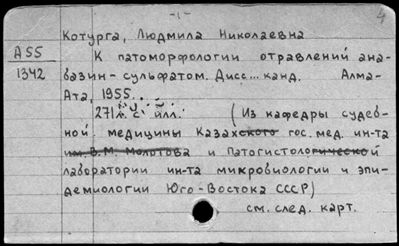 -1-
4
Котурга, Людмила Николаевна
А55
1342
К патоморфологии отравлений ана-
базин-сульфатом. Дисс... канд. Алма-
Ата, 1955.
271л. с илл. (Из кафедры судеб-
ной медицины Казахского гос. мед. ин-та
им. В. М. Молотова и Патогистологической
лаборатории ин-та микробиологии и эпи-
демиологии Юго-Востока СССР)
см. след. карт.